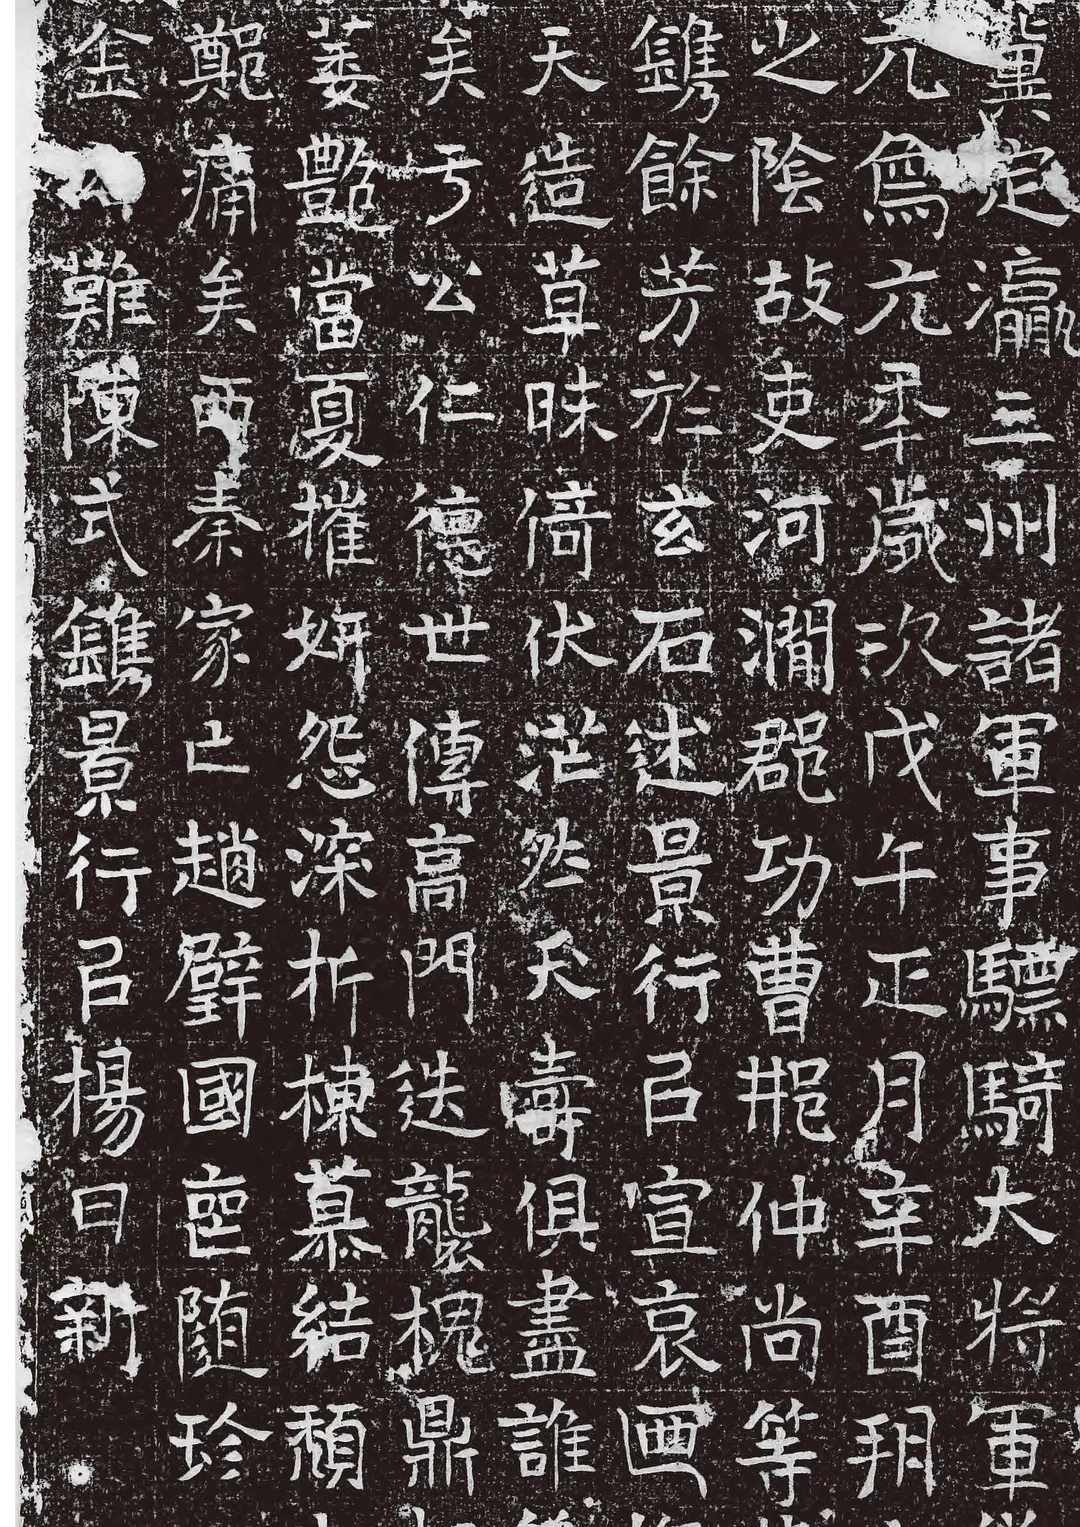 冀定瀛三州諸軍事驃騎大將軍
元爲元年歲次戊午正月辛酉朔
之陰故吏河澗郡功曹邢仲尚等
鐫餘芳於玄石述景行㠯宣哀
天造草昧倚伏茫然夭壽俱盡誰
矣于公仁德世傳高門迭襲槐鼎
萎艷當夏摧妍怨深折棟慕結頹
鄭痛矣西秦家亡趙璧國喪隨珍
金 難陳式鐫景行㠯楊日新